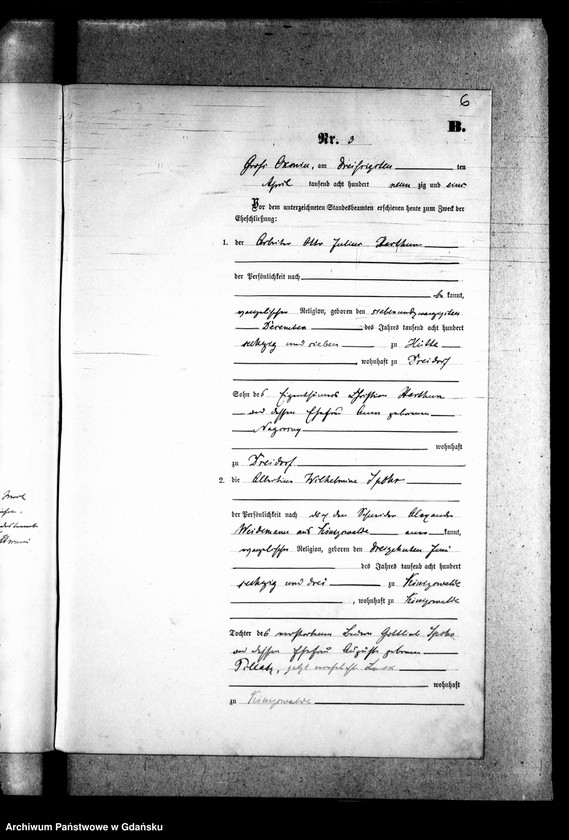 6
B.
Nr. 3
Groß Okonin, am dreißigsten ten
April tausend acht hundert neun zig und eins
Vor dem unterzeichneten Standesbeamten erschienen heute zum Zweck der
Eheschließung:
1. der Arbeiter Otto Julius
der Persönlichkeit nach
be kannt,
evangelischer Religion, geboren den siebenundzwanzigsten
Dezember des Jahres tausend acht hundert
sechzig und sieben zu Hütte
, wohnhaft zu Dreidorf
Sohn des Eigenthümers Christian
und dessen Ehefrau Anna geborenen
wohnhaft
zu Dreidorf
2. die Albertine Wilhelmine Spohr
der Persönlichkeit nach durch den Schneider Alexander
Weidemann aus Königswalde kannt,
evangelischer Religion, geboren den dreizehnten Juni
des Jahres tausend acht hundert
sechzig und drei zu Königswalde
, wohnhaft zu Königswalde
Tochter des verstorbenen Gottlieb Spohr
und dessen Ehefrau Auguste geborenen
jetzt verehelichte
wohnhaft
zu Königswalde
Archiwum Państwowe w Gdańsku